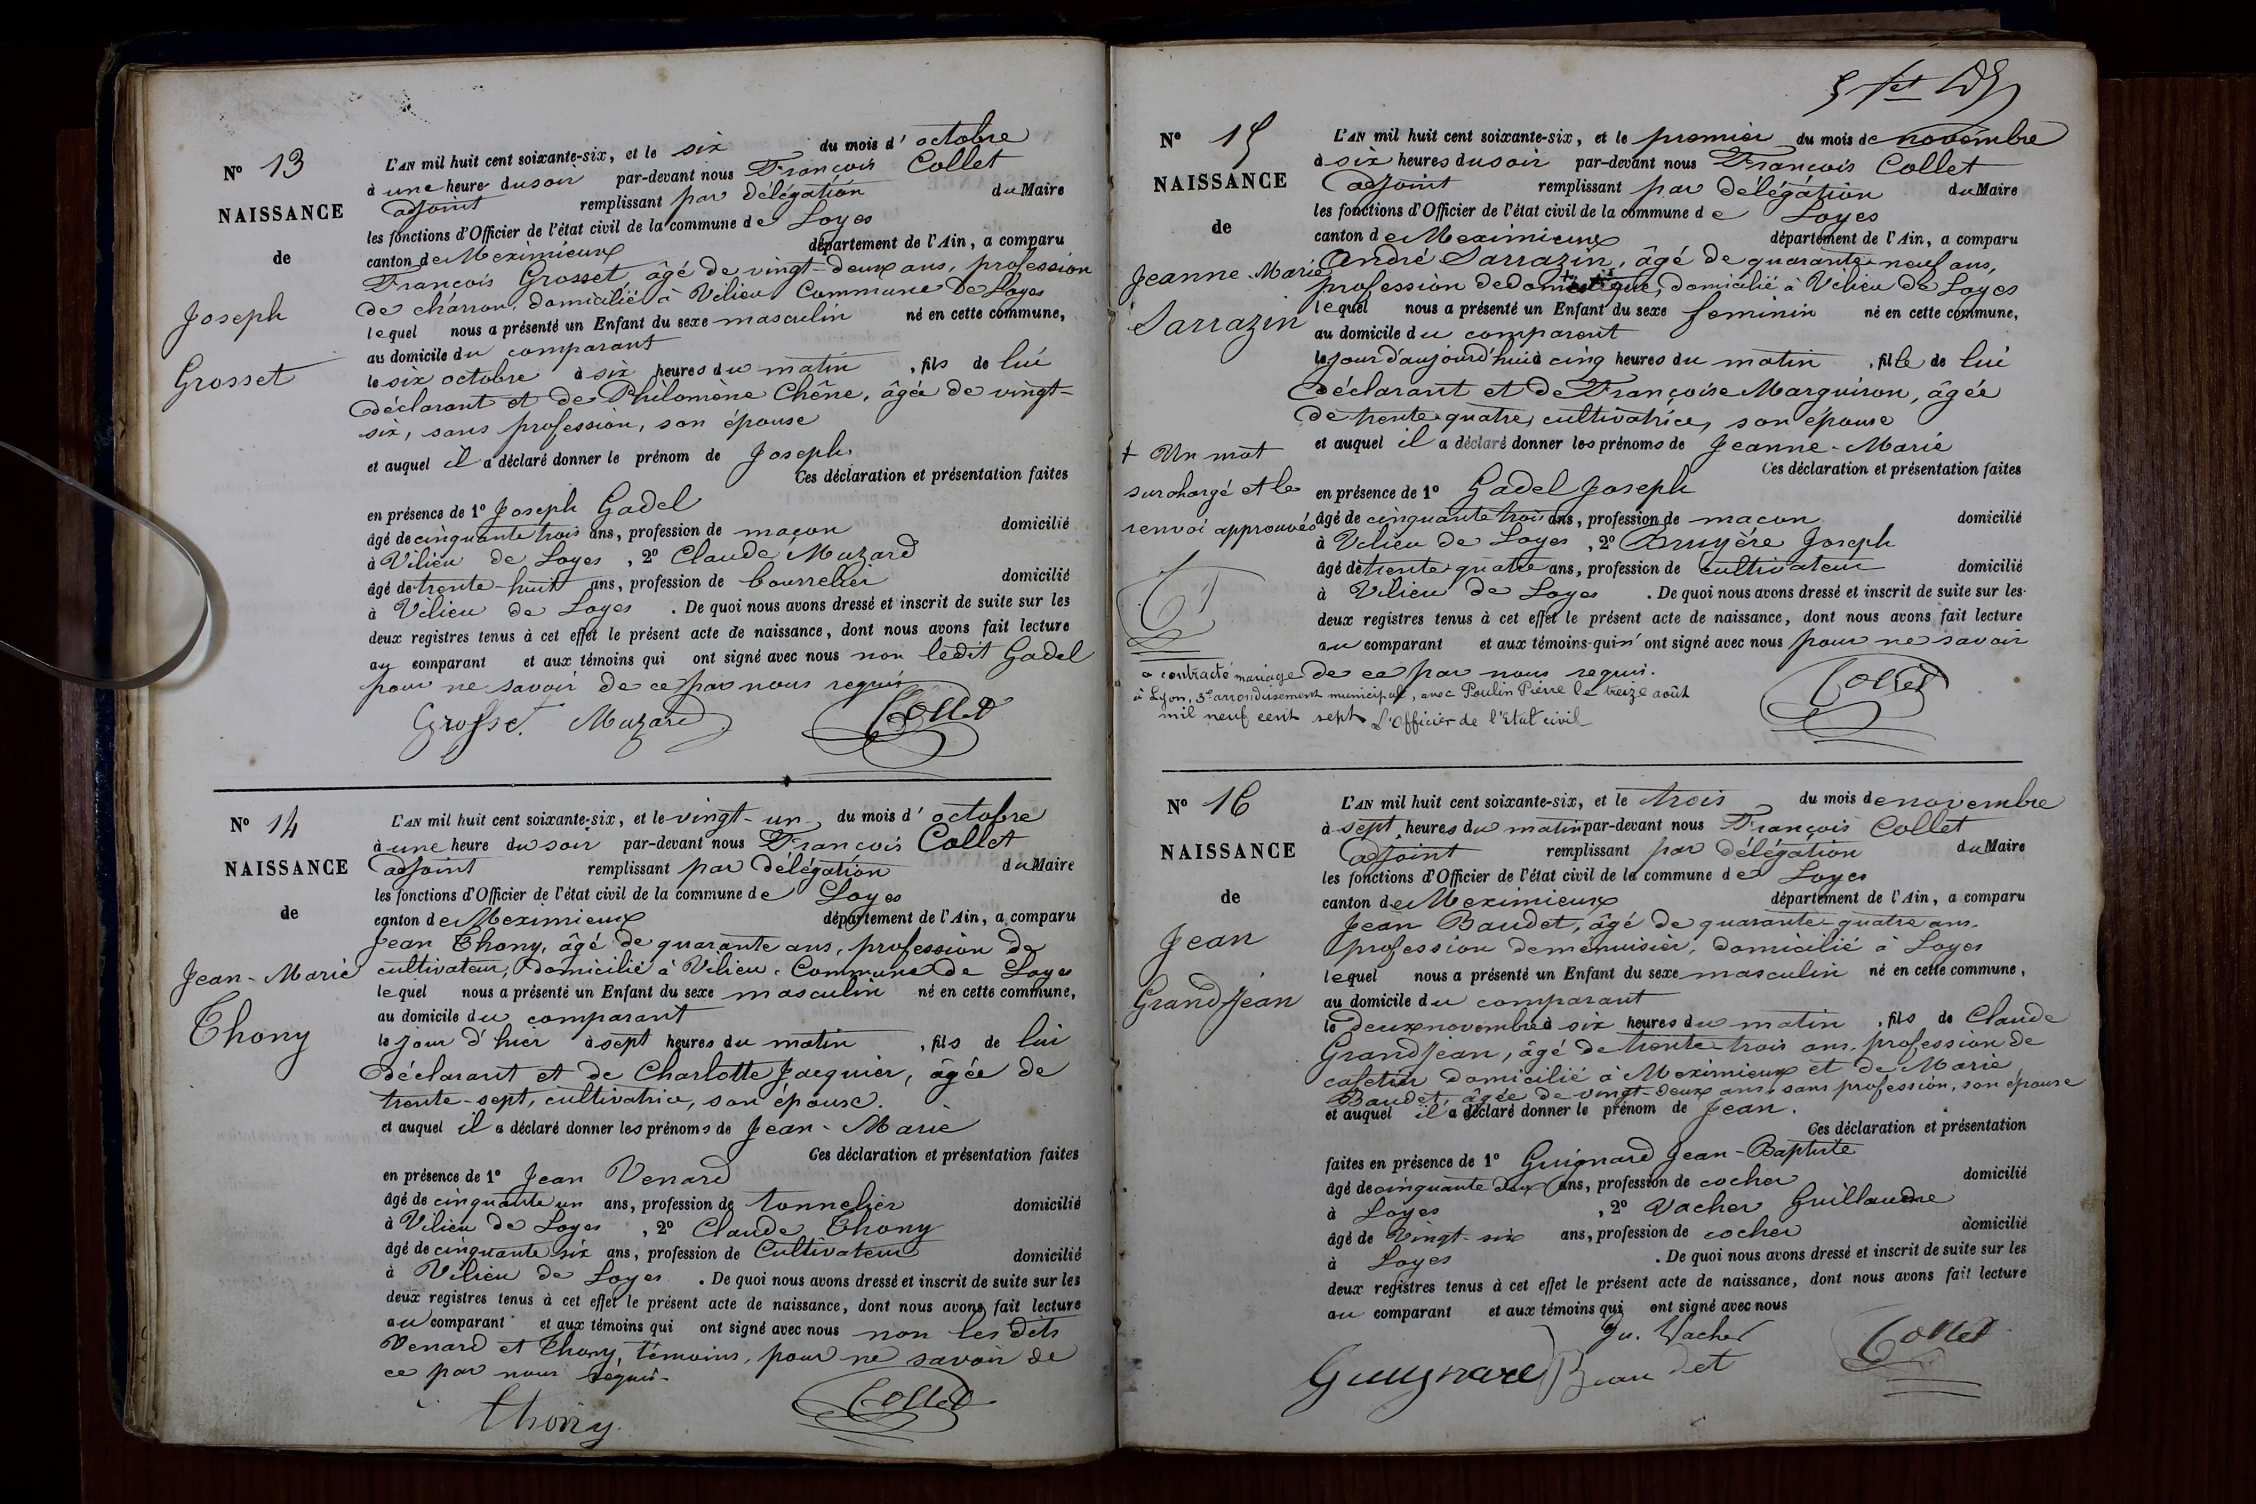 N° 13
NAISSANCE
de
Joseph
Grosset
L'AN mil huit cent soixante-six, et le six du mois d' octobre
à une heure du soir par-devant nous François Collet
adjoint remplissant par délégation du Maire
les fonctions d'Officier de l'état civil de la commune de Loyes
canton de Meximieux département de l'Ain, a comparu
François Grosset, âgé de vingt-deux ans, profession
de charron, domicilié à Vilieu Commune de Loyes
lequel nous a présenté un Enfant du sexe masculin né en cette commune,
au domicile du comparant
le six octobre à six heures du matin, fils de lui
déclarant et de Philomène Chêne, âgée de vingt-
six, sans profession, son épouse
et auquel il a déclaré donner le prénom de Joseph.
Ces déclaration et présentation faites
en présence de 1° Joseph Gadel
âgé de cinquante trois ans, profession de maçon domicilié
à Vilieu de Loyes, 2° Claude Muzard
âgé de trente-huit ans, profession de bourrelier domicilié
à Vilieu de Loyes. De quoi nous avons dressé et inscrit de suite sur les
deux registres tenus à cet effet le présent acte de naissance, dont nous avons fait lecture
au comparant et aux témoins qui ont signé avec nous non ledit Gadel
pour ne savoir de ce par nous requis
Grosset Muzard Collet
N° 14
NAISSANCE
de
Jean-Marie
Thony
L'AN mil huit cent soixante-six, et le vingt-un du mois d' octobre
à une heure du soir par-devant nous François Collet
adjoint remplissant par délégation du Maire
les fonctions d'Officier de l'état civil de la commune de Loyes
canton de Meximieux département de l'Ain, a comparu
Jean Thony, âgé de quarante ans, profession de
cultivateur, domicilié à Vilieu, Commune de Loyes
lequel nous a présenté un Enfant du sexe masculin né en cette commune,
au domicile du comparant
le jour d'hier à sept heures du matin, fils de lui
déclarant et de Charlotte Jacquier, âgée de
trente-sept, cultivatrice, son épouse.
et auquel il a déclaré donner les prénoms de Jean-Marie
Ces déclaration et présentation faites
en présence de 1° Jean Venard
âgé de cinquante un ans, profession de tonnelier domicilié
à Vilieu de Loyes, 2° Claude Thony
âgé de cinquante six ans, profession de Cultivateur domicilié
à Vilieu de Loyes. De quoi nous avons dressé et inscrit de suite sur les
deux registres tenus à cet effet le présent acte de naissance, dont nous avons fait lecture
au comparant et aux témoins qui ont signé avec nous non les dits
Venard et Thony, témoins, pour ne savoir de
ce par nous requis.
Thony Collet
N° 15
NAISSANCE
de
Jeanne-Marie
Sarrazin
+ Un mot
surchargé et le
renvoi approuvés
L'AN mil huit cent soixante-six, et le premier du mois de novembre
à six heures du soir par-devant nous François Collet
adjoint remplissant par délégation du Maire
les fonctions d'Officier de l'état civil de la commune de Loyes
canton de Meximieux département de l'Ain, a comparu
André Sarrazin, âgé de quarante-neuf ans,
profession de domestique, domicilié à Vilieu de Loyes
lequel nous a présenté un Enfant du sexe feminin né en cette commune,
au domicile du comparant
le jour d'aujourd'hui à cinq heures du matin, fille de lui
déclarant et de Françoise Marguiron, âgée
de trente-quatre, cultivatrice, son épouse
et auquel il a déclaré donner les prénoms de Jeanne-Marie
Ces déclaration et présentation faites
en présence de 1° Gadel Joseph
âgé de cinquante trois ans, profession de maçon domicilié
à Vilieu de Loyes, 2° Bruyère Joseph
âgé de trente quatre ans, profession de cultivateur domicilié
à Vilieu de Loyes. De quoi nous avons dressé et inscrit de suite sur les
deux registres tenus à cet effet le présent acte de naissance, dont nous avons fait lecture
au comparant et aux témoins qui n'ont signé avec nous pour ne savoir
de ce par nous requis.
Collet
a contracté mariage
à Lyon, 5e arrondissement municipal, avec Poulin Pierre le treize août
mil neuf cent sept L'Officier de l'Etat civil
N° 16
NAISSANCE
de
Jean
Grandjean
L'AN mil huit cent soixante-six, et le trois du mois de novembre
à sept heures du matin par-devant nous François Collet
adjoint remplissant par délégation du Maire
les fonctions d'Officier de l'état civil de la commune de Loyes
canton de Meximieux département de l'Ain, a comparu
Jean Baudet, âgé de quarante-quatre ans,
profession de menuisier, domicilié à Loyes
lequel nous a présenté un Enfant du sexe masculin né en cette commune,
au domicile du comparant
le deux novembre à six heures du matin, fils de Claude
Grandjean, âgé de trente-trois ans, profession de
cafetier domicilié à Meximieux et de Marie
Baudet, âgée de vingt-deux ans, sans profession, son épouse
et auquel il a déclaré donner le prénom de Jean.
Ces déclaration et présentation
faites en présence de 1° Guignard Jean-Baptiste
âgé de cinquante deux ans, profession de cocher domicilié
à Loyes, 2° Vacher Guillaume
âgé de Vingt-six ans, profession de cocher domicilié
à Loyes. De quoi nous avons dressé et inscrit de suite sur les
deux registres tenus à cet effet le présent acte de naissance, dont nous avons fait lecture
au comparant et aux témoins qui ont signé avec nous
Gu. Vacher Collet
Guignard Baudet